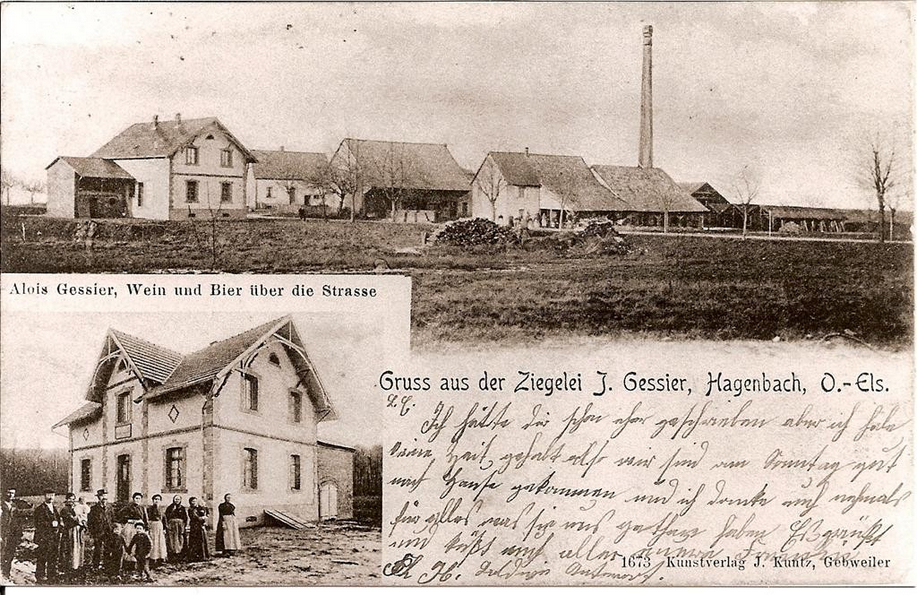 Alois Gessier, Wein und Bier über die Strasse
Gruss aus der Ziegelei J. Gessier, Hagenbach, O.-Els.
Ich hätte dir schon eher geschrieben aber ich habe
keine Zeit gehabt also wir sind am Sonntag gut
nach Hause gekommen und ich danke euch nochmals
für alles was sie uns gethan haben Es grüßt
und küßt euch alle
1673 Kunstverlag J. Kuntz, Gebweiler